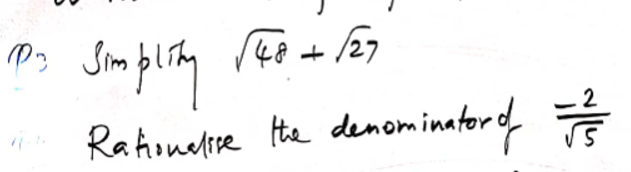 P3 Simplify √48 + √27
Rationalise the denominator of -2/√5